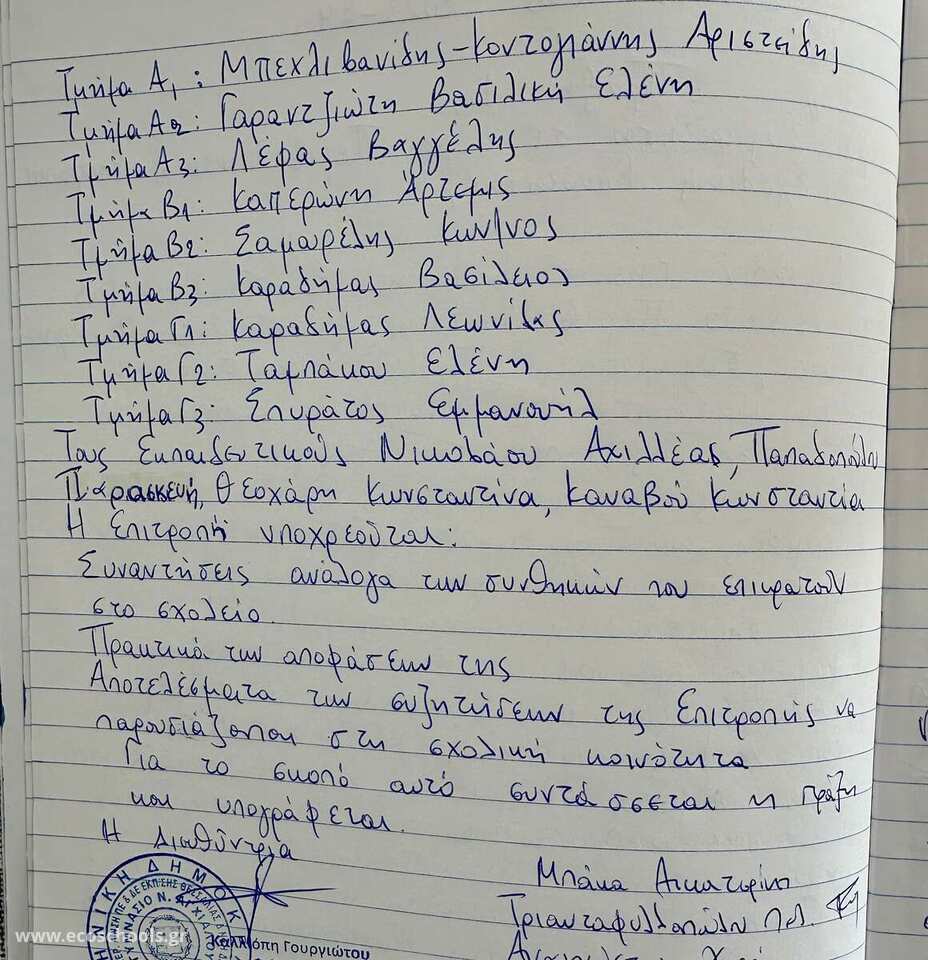 Τμήμα Α1: Μπεχλιβανίδης-Κοντογιάννης Αριστείδης
Τμήμα Α2: Γαραντζιώτη Βασιλική Ελένη
Τμήμα Α3: Λέφας Βαγγέλης
Τμήμα Β1: Καπερώνη Άρτεμις
Τμήμα Β2: Σαμαρέλης Κων/νος
Τμήμα Β3: Καραδήμας Βασίλειος
Τμήμα Γ1: Καραδήμας Λεωνίδας
Τμήμα Γ2: Ταμπάκου Ελένη
Τμήμα Γ3: Σπυράτος Εμμανουήλ
Τους Εκπαιδευτικούς Νικολάου Αχιλλέας, Παπαδοπούλου
Παρασκευή, Θεοχάρη Κωνσταντίνα, Καναβού Κωνσταντία
Η Επιτροπή υποχρεούται:
Συναντήσεις ανάλογα των συνθηκών που επικρατούν
στο σχολείο.
Πρακτικά των αποφάσεων της
Αποτελέσματα των συζητήσεων της Επιτροπής να
παρουσιάζονται στη σχολική κοινότητα
Για το σκοπό αυτό συντάσσεται η πράξη
και υπογράφεται.
Η Διευθύντρια
Μπάκα Αικατερίνη
Τριανταφυλλοπούλου Πελ.
ΝΙΚΗ ΔΗΜΟΚ
Καλλιόπη Γουργιώτου
www.ecoschools.gr